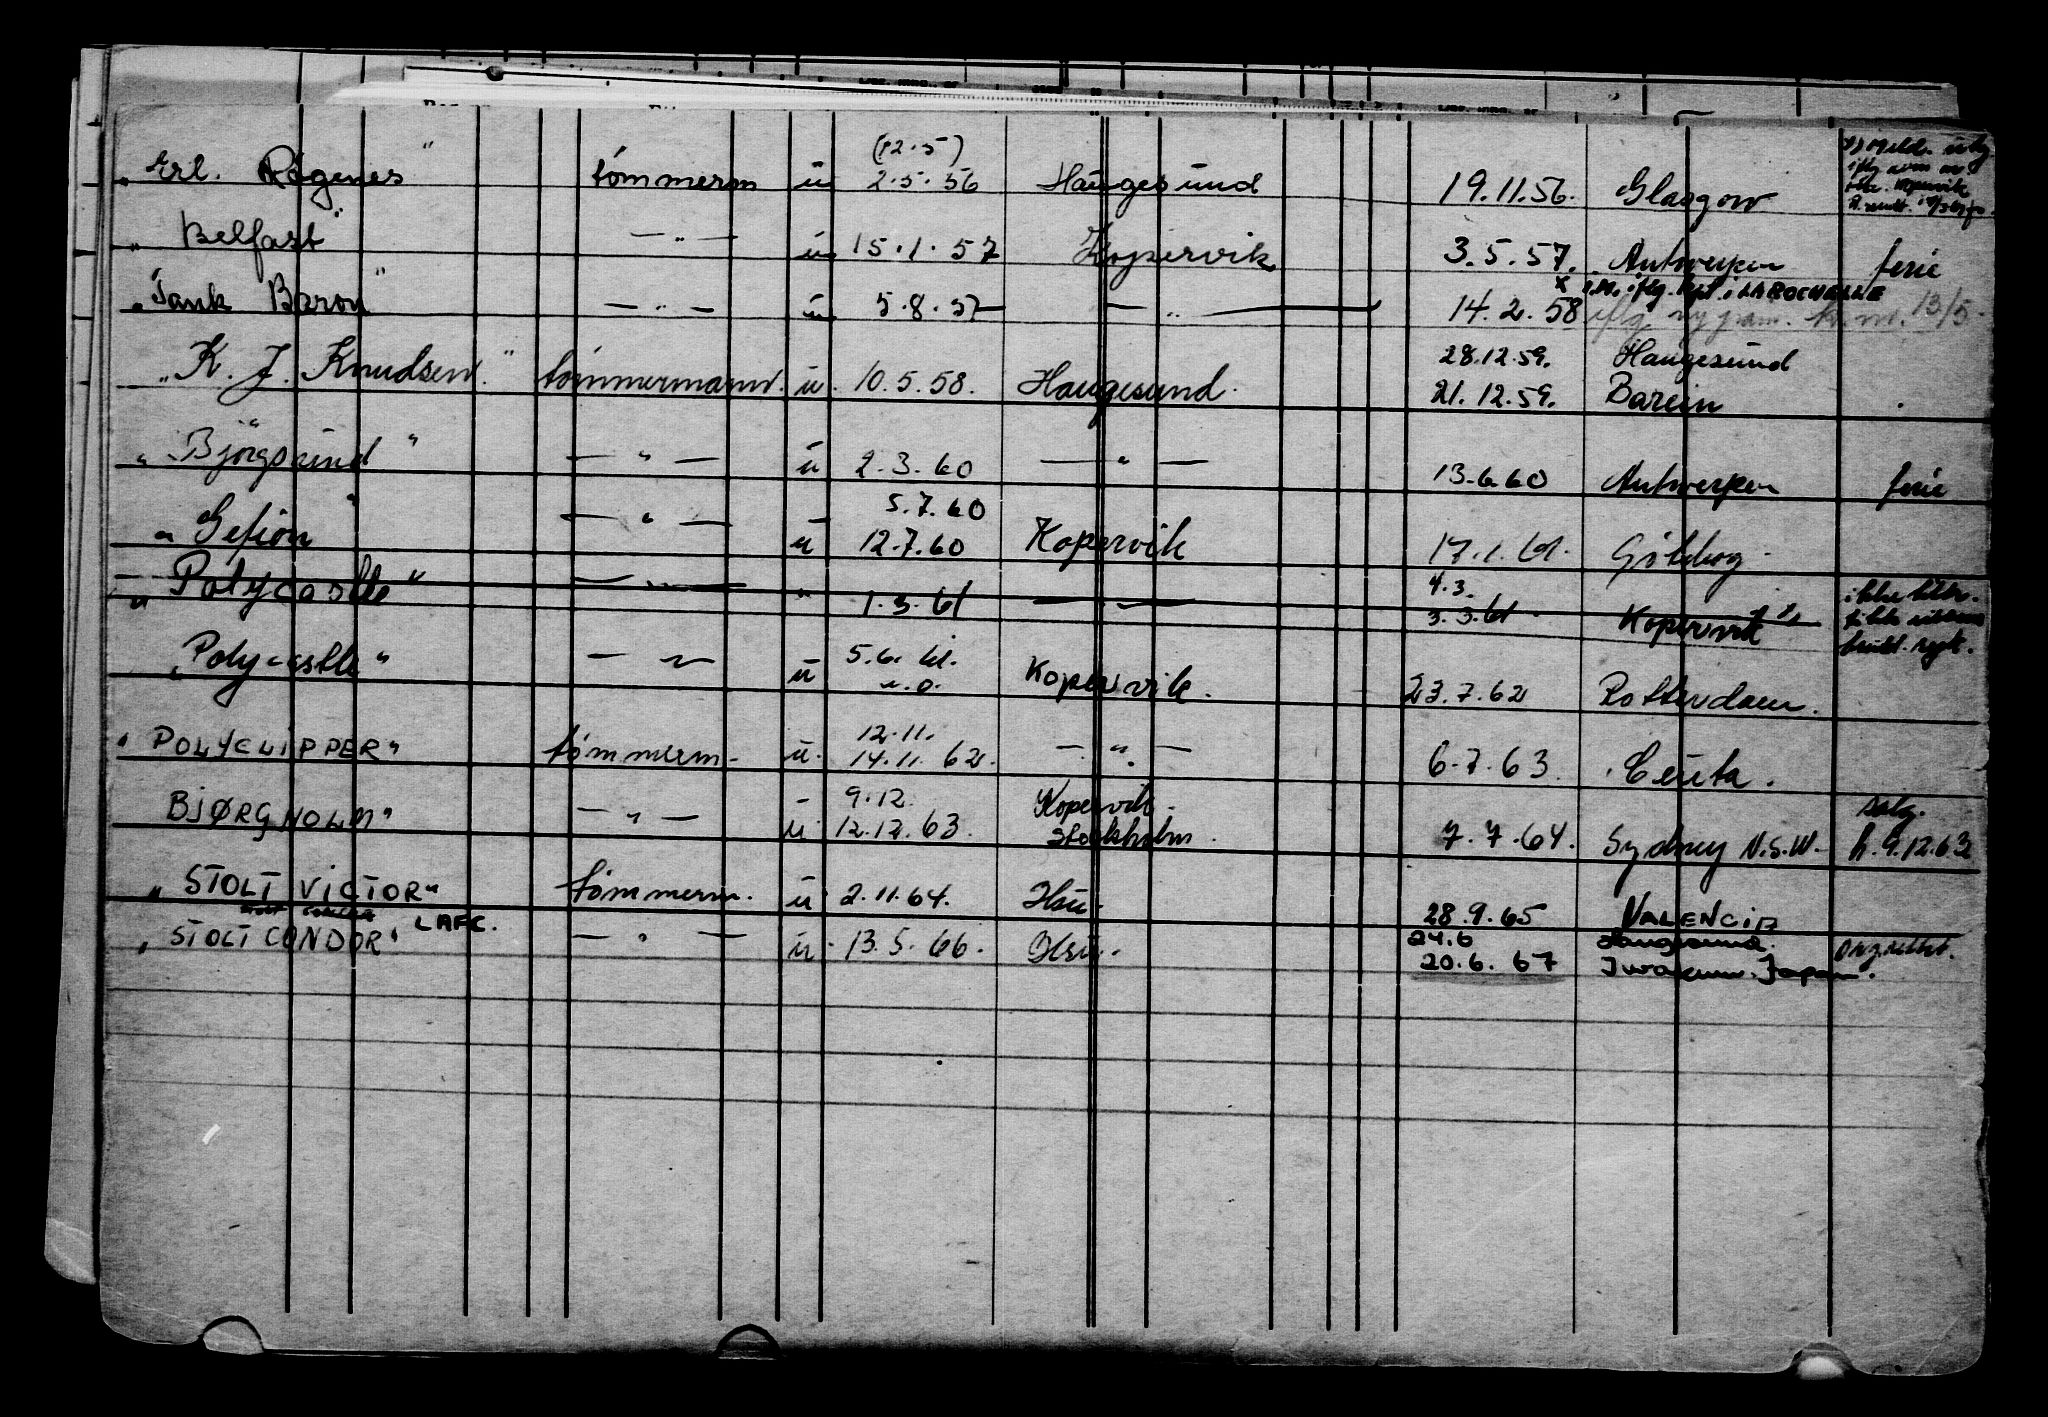 (12.5)
Erl. Rögenes" tömmerm ū 2.5.56 Haugesund 19.11.56. Glasgow
"Belfast" — " — ū 15.1.57 Kopervik 3.5.57. Antwerpen ferie
"Tank Baron" — " — ū 5.8.57 — " — 14.2.58 LA ROCHELLE 13/5.
28.12.59. Haugesund
"K. J. Knudsen" tömmermann. ū. 10.5.58. Haugesund. 21.12.59. Barein
"Björgsund" — " — ū 2.3.60 — " — 13.6.60 Antwerpen ferie
5.7.60
"Gefion" — " — ū 12.7.60 Kopervik 17.1.61. Götebog.
4.3. ikke
"Polycastle" — " — " 1.3.61 — " — 3.3.61. Kopervik
"Polycastle" — " — ū 5.6.61. Kopervik. 23.7.62 Rotterdam.
u.o.
12.11.
"POLYCLIPPER" tömmerm. ū. 14.11.62. — " — 6.7.63. Ceuta.
9.12. Kopervik. salg.
BJØRGHOLM" — " — ū 12.12.63. Stockholm. 7.7.64. Sydney N.S.W. h. 9.12.63
"STOLT VICTOR" tömmerm. ū 2.11.64. Hsu. 28.9.65 VALENCIA
LAFC. 24.6 Haugesund.
"STOLT CONDOR" — " — ū. 13.5.66. Hsu. 20.6.67 Iwakuni. Japan.